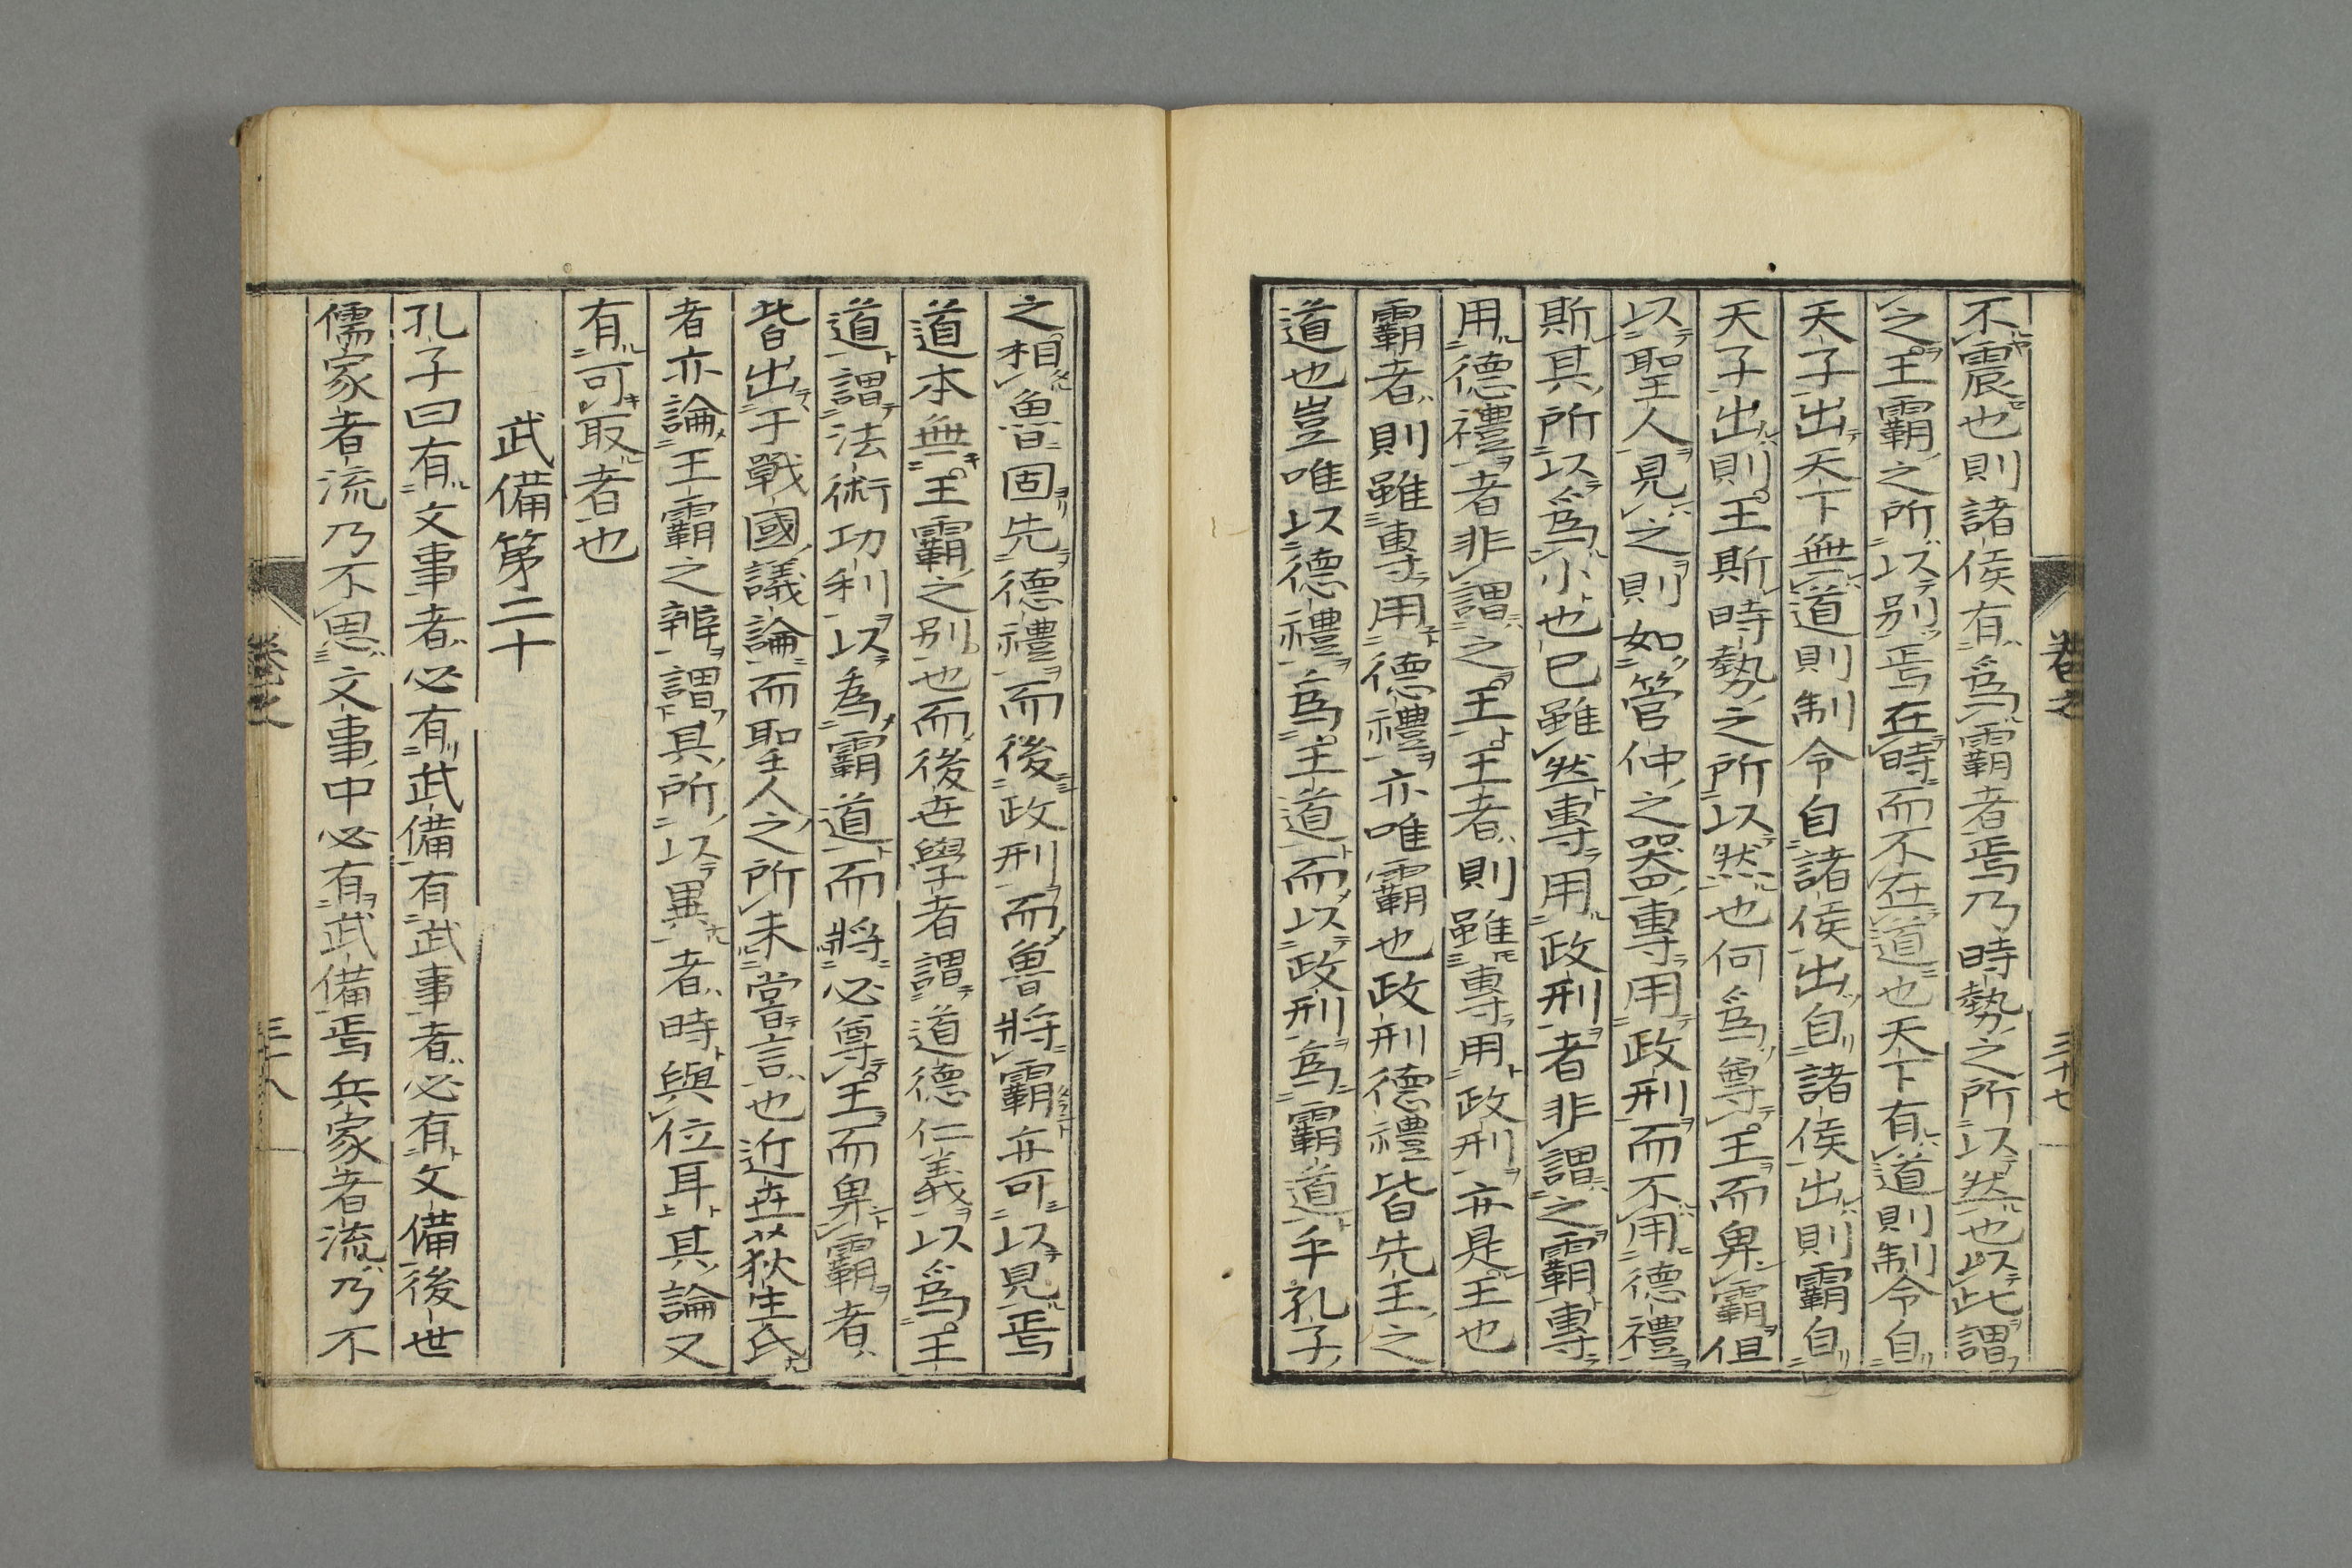 不震也則諸侯有爲霸者焉乃時勢之所以然也以此謂
之王霸之所以別焉在時而不在道也天下有道則制令自
天子出天下無道則制令自諸侯出自諸侯出則霸自
天子出則王斯時勢之所以然也何爲尊王而卑霸但
以聖人見之則如管仲之器專用政刑而不用德禮
斯其所以爲小也已雖然專用政刑者非謂之霸專
用德禮者非謂之王王者則雖專用政刑亦是王也
霸者則雖專用德禮亦唯霸也政刑德禮皆先王之
道也豈唯以德禮爲王道而以政刑爲霸道乎孔子
卷之 三十七
之相魯固先德禮而後政刑而魯將霸亦可以見焉
道本無王霸之別也而後世學者謂道德仁義以爲王
道謂法術功利以為霸道而將必尊王而卑霸者
皆出于戰國議論而聖人之所未嘗言也近世荻生氏
者亦論王霸之辨謂其所以異者時與位耳其論又
有可取者也
武備第二十
孔子曰有文事者必有武備有武事者必有文備後世
儒家者流乃不思文事中必有武備焉兵家者流乃不
卷之 三十八